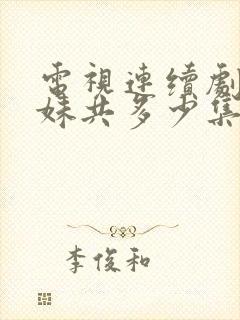 電視連續劇
妹共多少集
李俊和